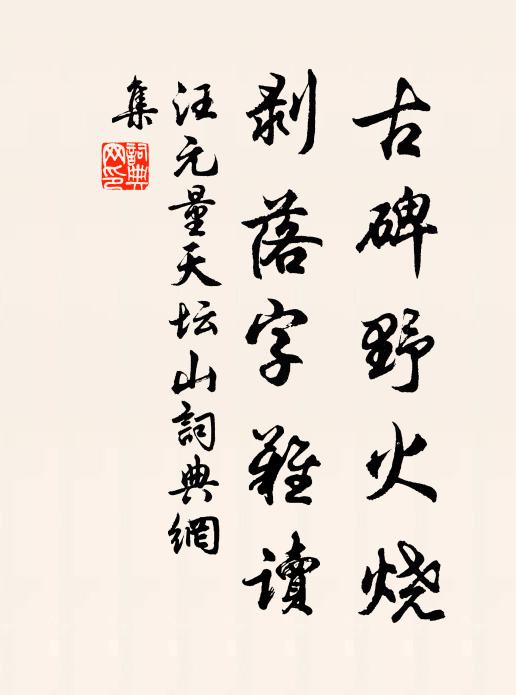 古碑野火烧
剥落字難读
汪元量天坛山詞典網
集
詞典
网印